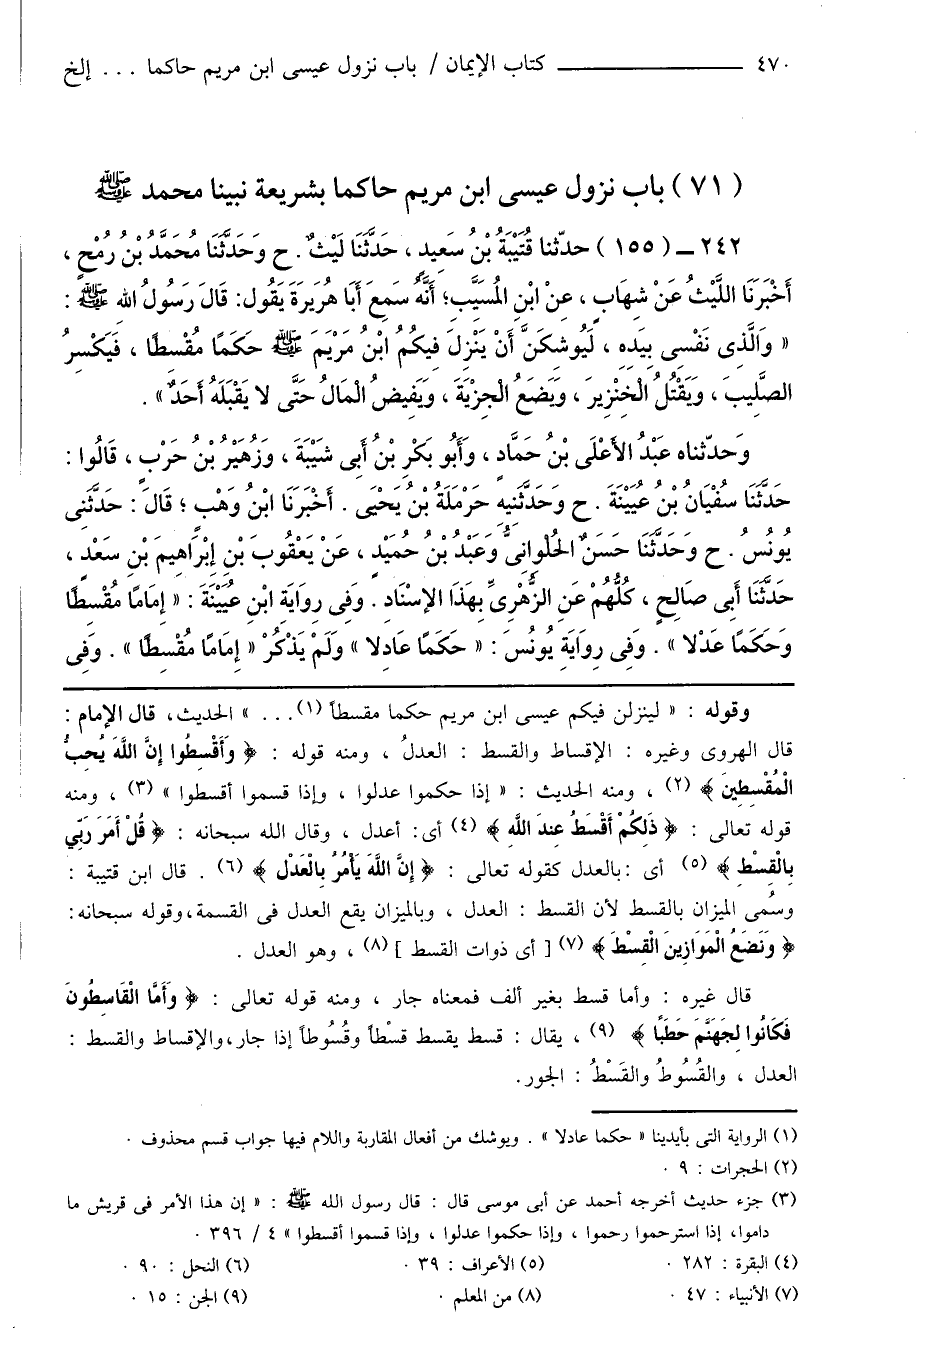 ٤٧٠ ـــــــــــــ كتاب الإيمان / باب نزول عيسى ابن مريم حاكما ... إلخ
(٧١) باب نزول عيسى ابن مريم حاكما بشريعة نبينا محمد ﷺ
٢٤٢ ـ (١٥٥) حدّثنا قُتَيْبَةُ بْنُ سَعِيدٍ ، حَدَّثَنَا لَيْثٌ . ح وَحَدَّثَنَا مُحَمَّدُ بْنُ رُمْحٍ ،
أَخْبَرَنَا اللَّيْثُ عَنْ شِهَابٍ ، عَنْ ابْنِ المُسَيَّبِ؛ أَنَّهُ سَمِعَ أَبَا هُرَيرَةَ يَقُول: قَالَ رَسُولُ الله ﷺ :
« وَالَّذِى نَفْسِى بِيَدِهِ ، لَيُوشكَنَّ أَنْ يَنْزِلَ فِيكُمُ ابْنُ مَرْيَمَ ﷺ حَكَمًا مُقْسِطًا ، فَيَكْسِرُ
الصَّلِيبَ ، وَيَقْتُلُ الْخِنْزِيرَ ، وَيَضَعُ الْجِزْيَةَ ، وَيَفِيضُ الْمَالُ حَتَّى لا يَقْبَلَهُ أَحَدٌ» .
وَحدّثناه عَبْدُ الأَعْلَى بْنُ حَمَّادٍ ، وَأَبُو بَكْرِ بْنُ أَبِى شَيْبَةَ ، وَزُهَيْرُ بْنُ حَرْبٍ ، قَالُوا :
حَدَّثَنَا سُفْيَانُ بْنُ عُيَيْنَةَ . ح وَحَدَّثَنِيهِ حَرْمَلَةُ بْنُ يَحْيَى . أَخْبَرَنَا ابْنُ وَهْبٍ ؛ قَالَ : حَدَّثَنِى
يُونُسُ . ح وَحَدَّثَنَا حَسَنٌ الحُلْوانِىُّ وَعَبْدُ بْنُ حُمَيْدٍ ، عَنْ يَعْقُوبَ بْنِ إِبْرَاهِيمَ بْنِ سَعْدٍ ،
حَدَّثَنَا أَبِى صَالِحٍ ، كُلُّهُمْ عَنِ الزُّهْرِىِّ بِهَذَا الإِسْنَادِ . وَفِى رِوَايَةِ ابْنِ عُيَيْنَةَ : « إِمَامًا مُقْسِطًا
وَحَكَمًا عَدْلا » . وَفِى رِوَايَةِ يُونُسَ : « حَكَمًا عَادِلا » وَلَمْ يَذْكُرْ « إِمَامًا مُقْسِطًا » . وَفِى
وقوله : « لينزلن فيكم عيسى ابن مريم حكما مقسطاً (١) ... » الحديث، قال الإمام :
قال الهروى وغيره : الإقساط والقسط : العدلُ ، ومنه قوله : ﴿ وَأَقْسِطُوا إِنَّ اللَّهَ يُحِبُّ
الْمُقْسِطِينَ ﴾ (٢) ، ومنه الحديث : « إذا حكموا عدلوا ، وإذا قسموا أقسطوا » (٣) ، ومنه
قوله تعالى : ﴿ ذَلِكُمْ أَقْسَطُ عِندَ اللَّهِ ﴾ (٤) أى: أعدل ، وقال الله سبحانه : ﴿ قُلْ أَمَرَ رَبِّي
بِالْقِسْطِ ﴾ (٥) أى :بالعدل كقوله تعالى : ﴿ إِنَّ اللَّهَ يَأْمُرُ بِالْعَدْلِ ﴾ (٦) . قال ابن قتيبة :
وسُمى الميزان بالقسط لأن القسط : العدل ، وبالميزان يقع العدل فى القسمة،وقوله سبحانه:
﴿ وَنَضَعُ الْمَوَازِينَ الْقِسْطَ ﴾ (٧) [ أى ذوات القسط ] (٨) ، وهو العدل .
قال غيره : وأما قسط بغير ألف فمعناه جار ، ومنه قوله تعالى : ﴿ وَأَمَّا الْقَاسِطُونَ
فَكَانُوا لِجَهَنَّمَ حَطَبًا ﴾ (٩) ، يقال : قسط يقسط قسْطاً وقُسُوطاً إذا جار،والإقساط والقسط :
العدل ، والقُسُوطُ والقَسْطُ : الجور.
(١) الرواية التى بأيدينا « حكما عادلا » . ويوشك من أفعال المقاربة واللام فيها جواب قسم محذوف .
(٢) الحجرات : ٩ .
(٣) جزء حديث أخرجه أحمد عن أبى موسى قال : قال رسول الله ﷺ : « إن هذا الأمر فى قريش ما
داموا، إذا استرحموا رحموا ، وإذا حكموا عدلوا ، وإذا قسموا أقسطوا » ٤ / ٣٩٦ .
(٤) البقرة : ٢٨٢ . (٥) الأعراف : ٣٩ . (٦) النحل : ٩٠ .
(٧) الأنبياء : ٤٧ . (٨) من المعلم . (٩) الجن : ١٥ .